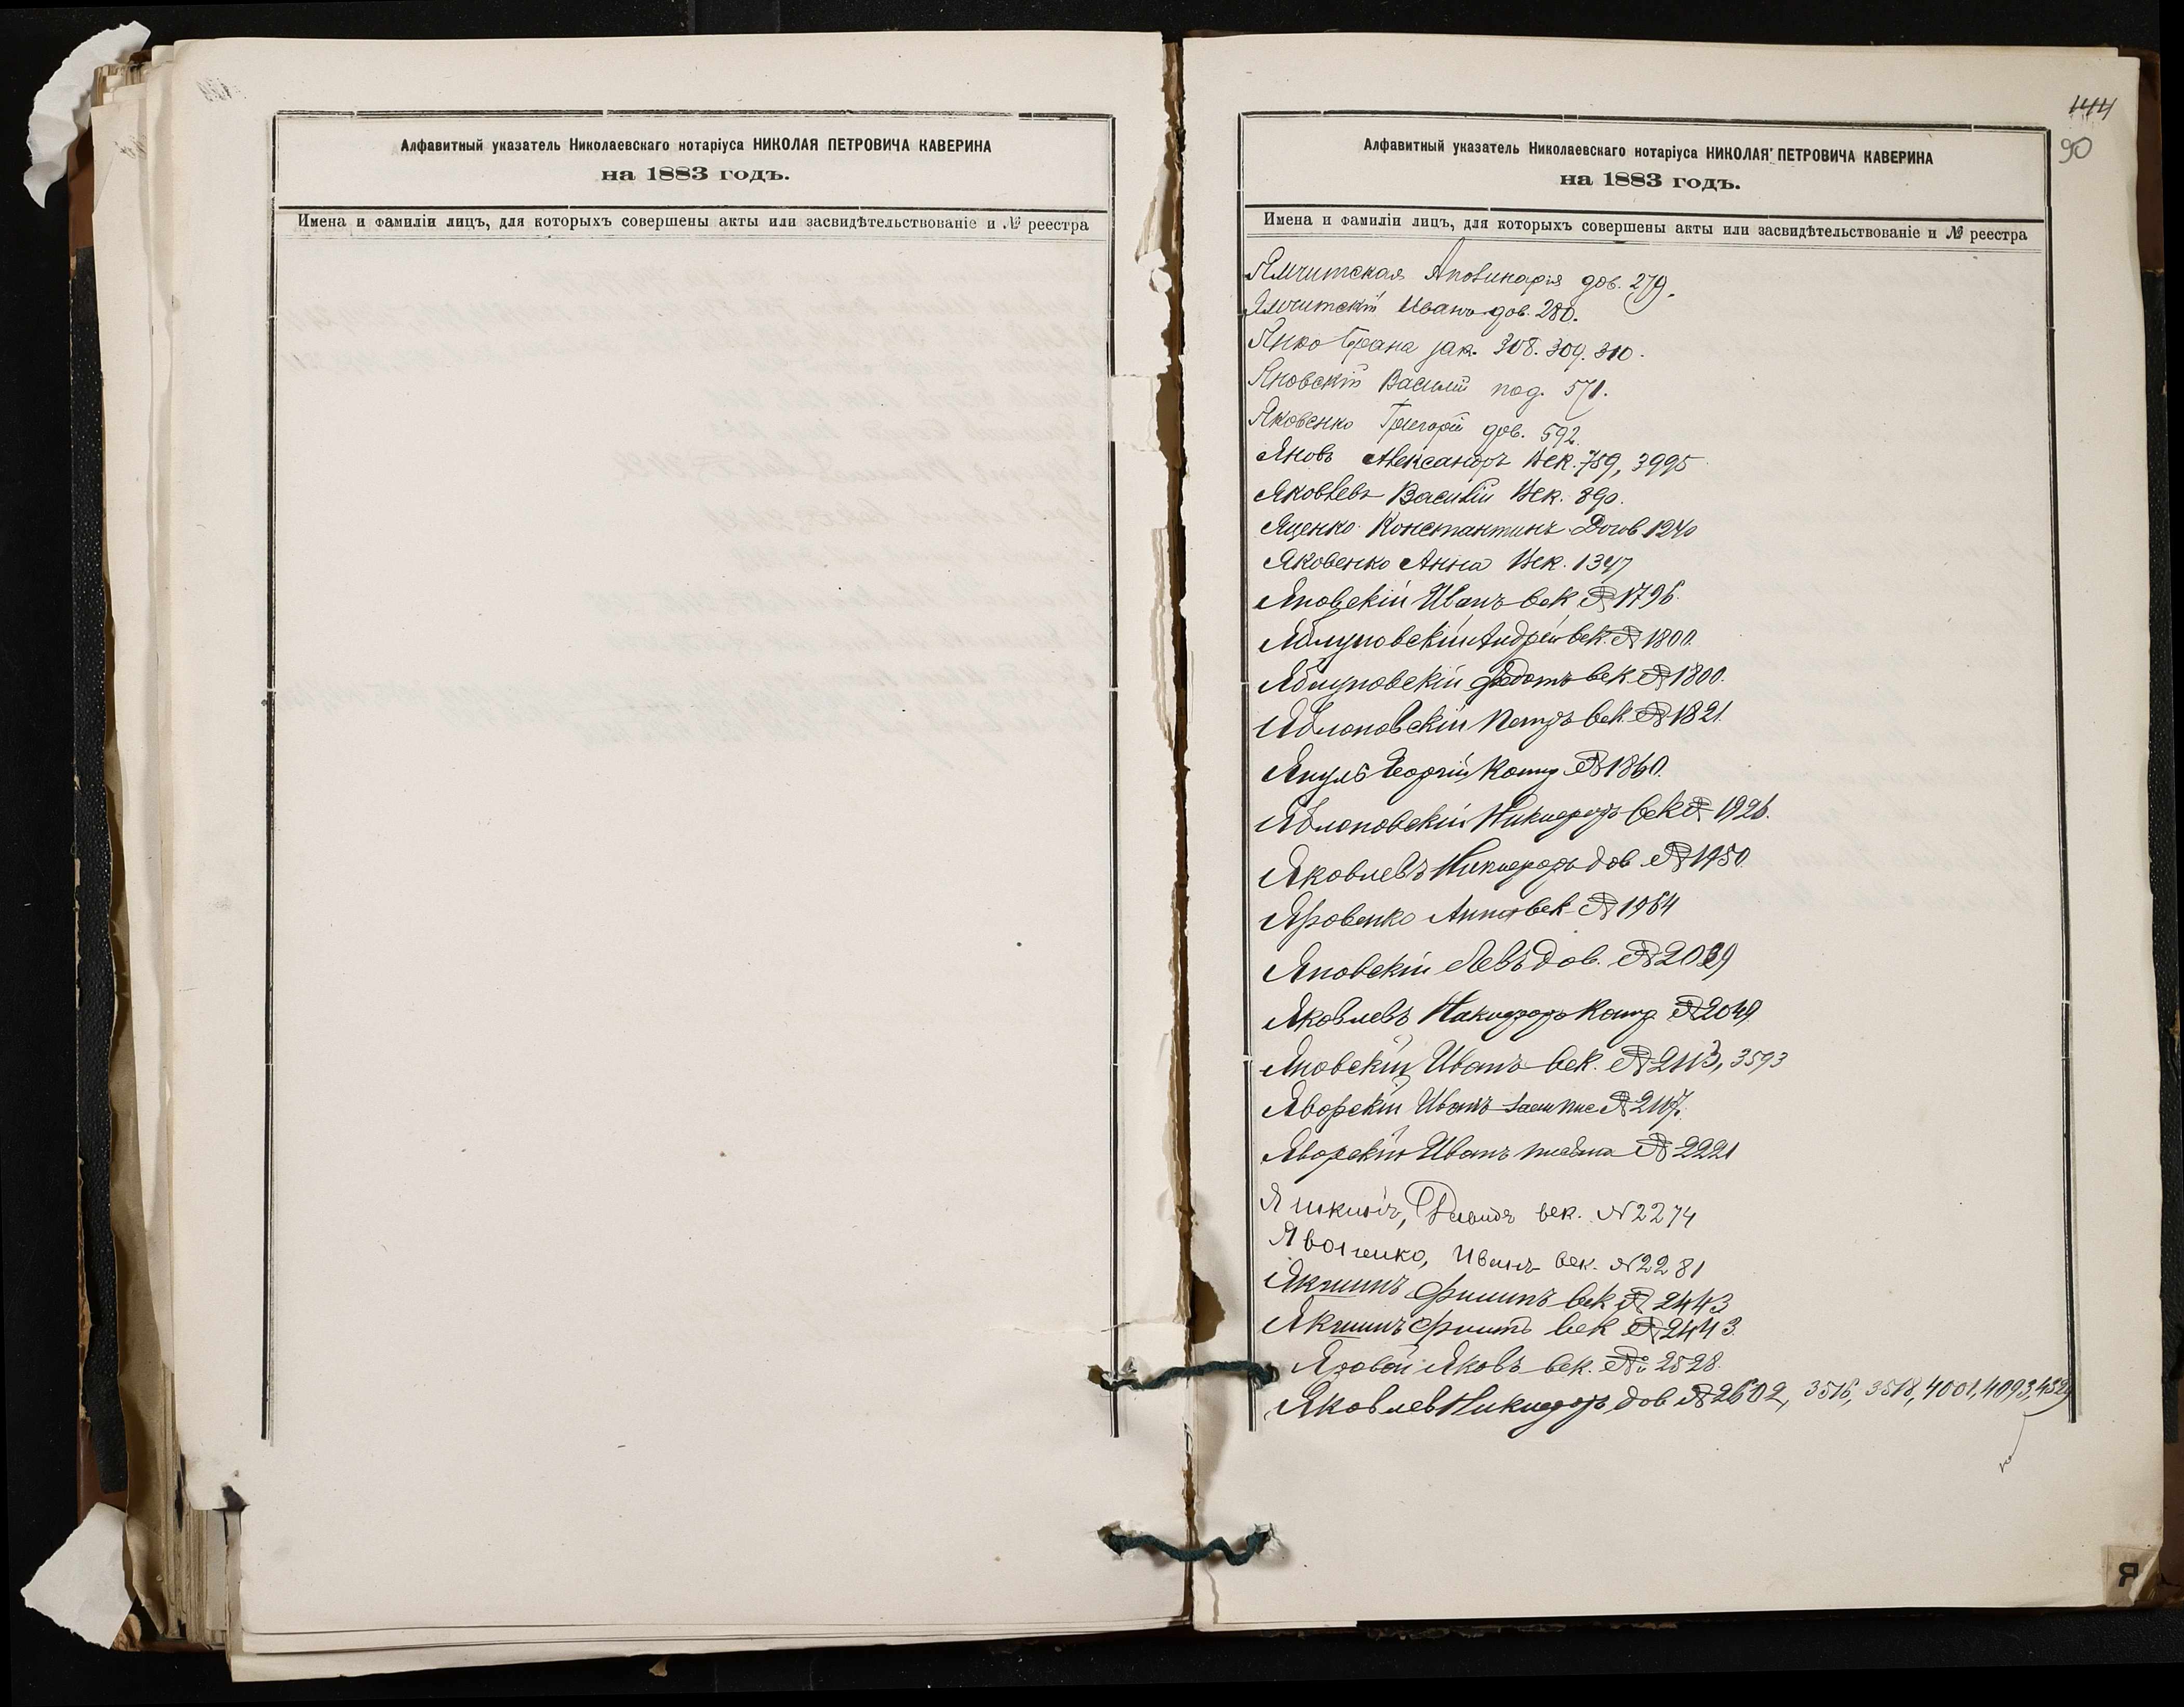 Алфавитный указатель Николаевскаго нотаріуса НИКОЛАЯ ПЕТРОВИЧА КАВЕРИНА
на 1883 годъ.
Имена и фамиліи лицъ, для которыхъ совершены акты или засвидѣтельствованіе и № реестра
144
90
Алфавитный указатель Николаевскаго нотаріуса НИКОЛАЯ ПЕТРОВИЧА КАВЕРИНА
на 1883 годъ.
Имена и фамиліи лицъ, для которыхъ совершены акты или засвидѣтельствованіе и № реестра
Ямчитская Аполинарія дов. 279.
Ямчитскій Иванъ дов. 280.
Янко зак. 308. 309. 310.
Яновскій Василій под. 571.
Яковенко Григорій дов. 592.
Яновъ Александръ Век. 789, 3995
Яковлевъ Василій Век. 890.
Яценко Константинъ Догов 1240
Яковенко Анна Век. 1347
Яновскій Иванъ век № 1796.
Яблуновскій Андрей век. № 1800.
Яблуновскій Федотъ век. № 1800.
Яблоновскій Петръ век. № 1821.
Георгій № 1860.
Яблоновскій Никифоръ век № 1926.
Яковлевъ Никифоръ дов № 1950
Яровенко Анна век № 1964
Яновскій Левъ дов. №
Яковлевъ Никифоръ № 2049
Яновскій Иванъ век. № 2113, 3593
Яворскій Иванъ № 2117.
Яворскій Иванъ № 2221
Давидъ век. № 2274
Иванъ век. № 2281
Якшинъ Филипъ век № 2443
Якшинъ Филипъ век № 2443.
Яровой Яковъ век. № 2528.
Яковлев Никифоръ дов № 2602, 3516, 3518, 4001, 4093,
Я